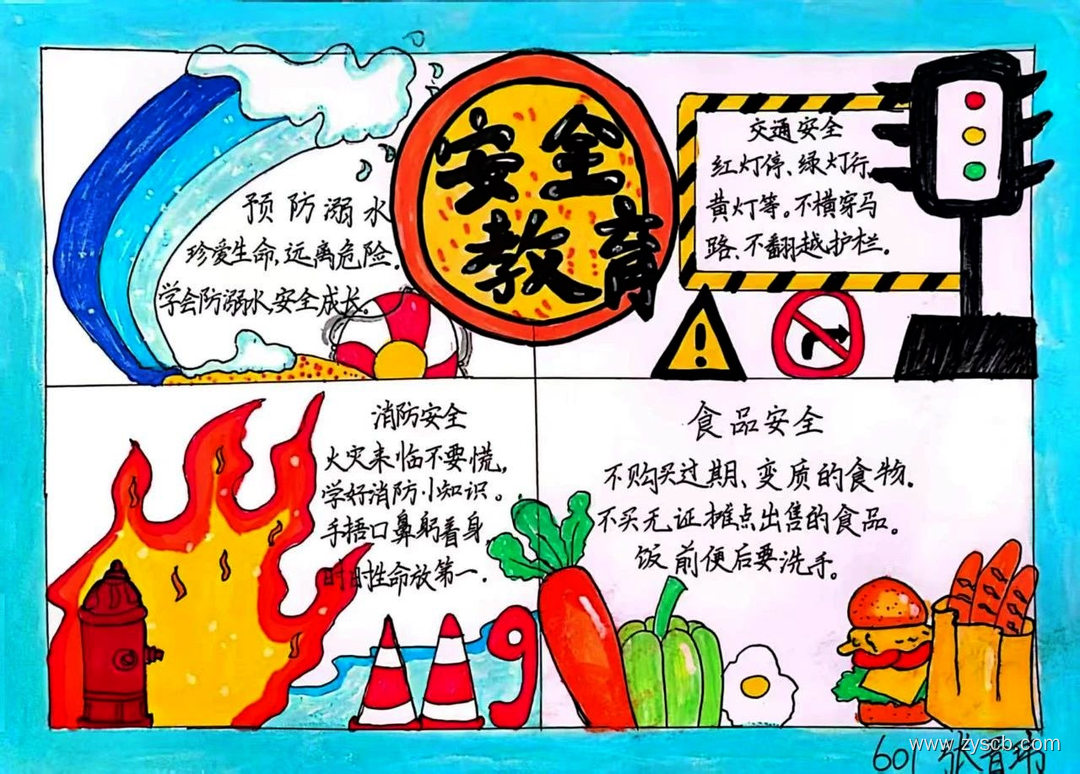 安全
教育
预防溺水
珍爱生命,远离危险.
学会防溺水,安全成长.
交通安全
红灯停、绿灯行、
黄灯等。不横穿马
路、不翻越护栏。
消防安全
火灾来临不要慌,
学好消防小知识。
手捂口鼻躬着身,
时时性命放第一.
119
食品安全
不购买过期、变质的食物.
不买无证摊点出售的食品。
饭前便后要洗手。
www.zyscb.com
601 张